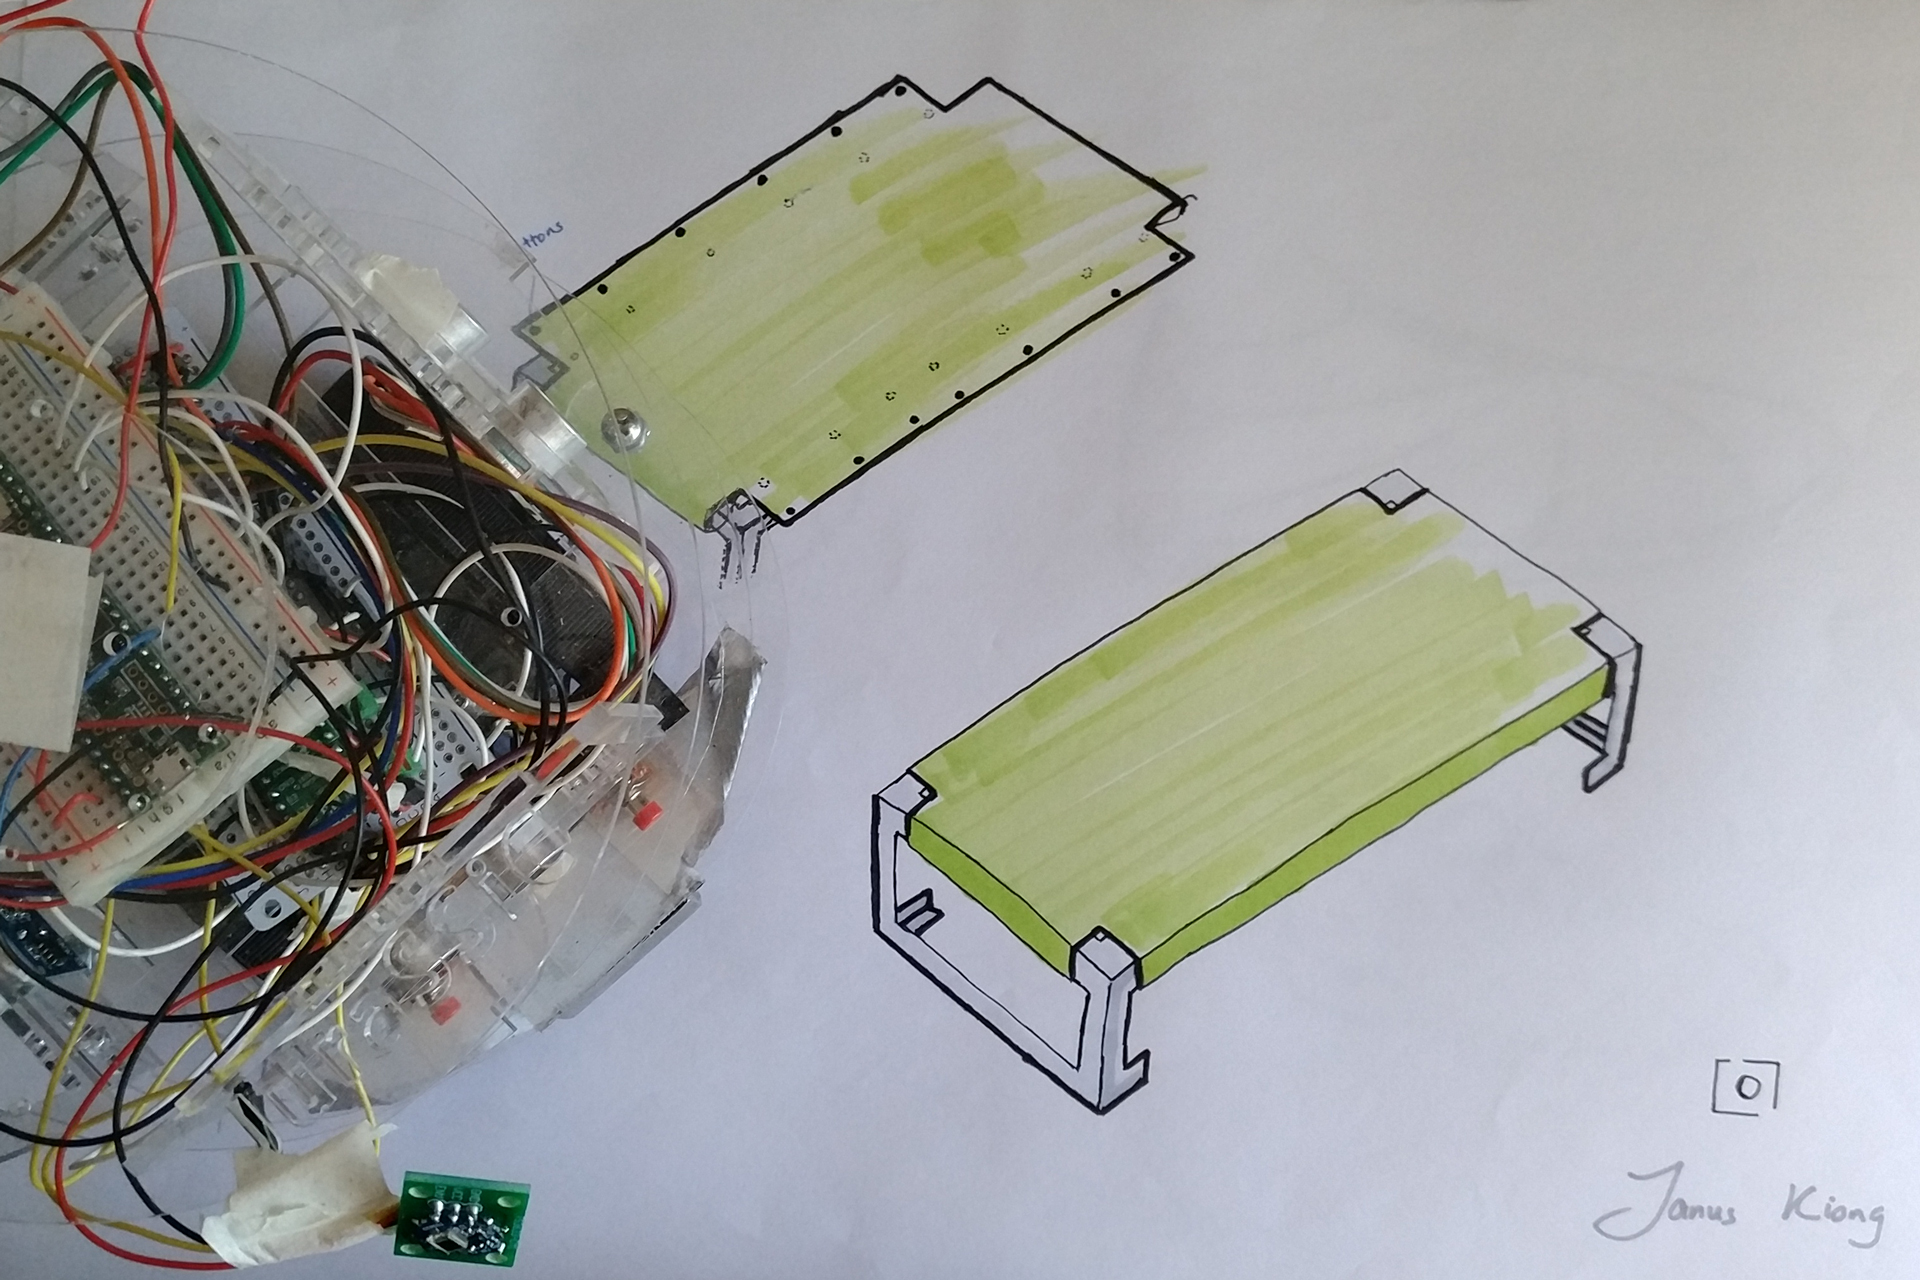 ttons
Janus Kiong